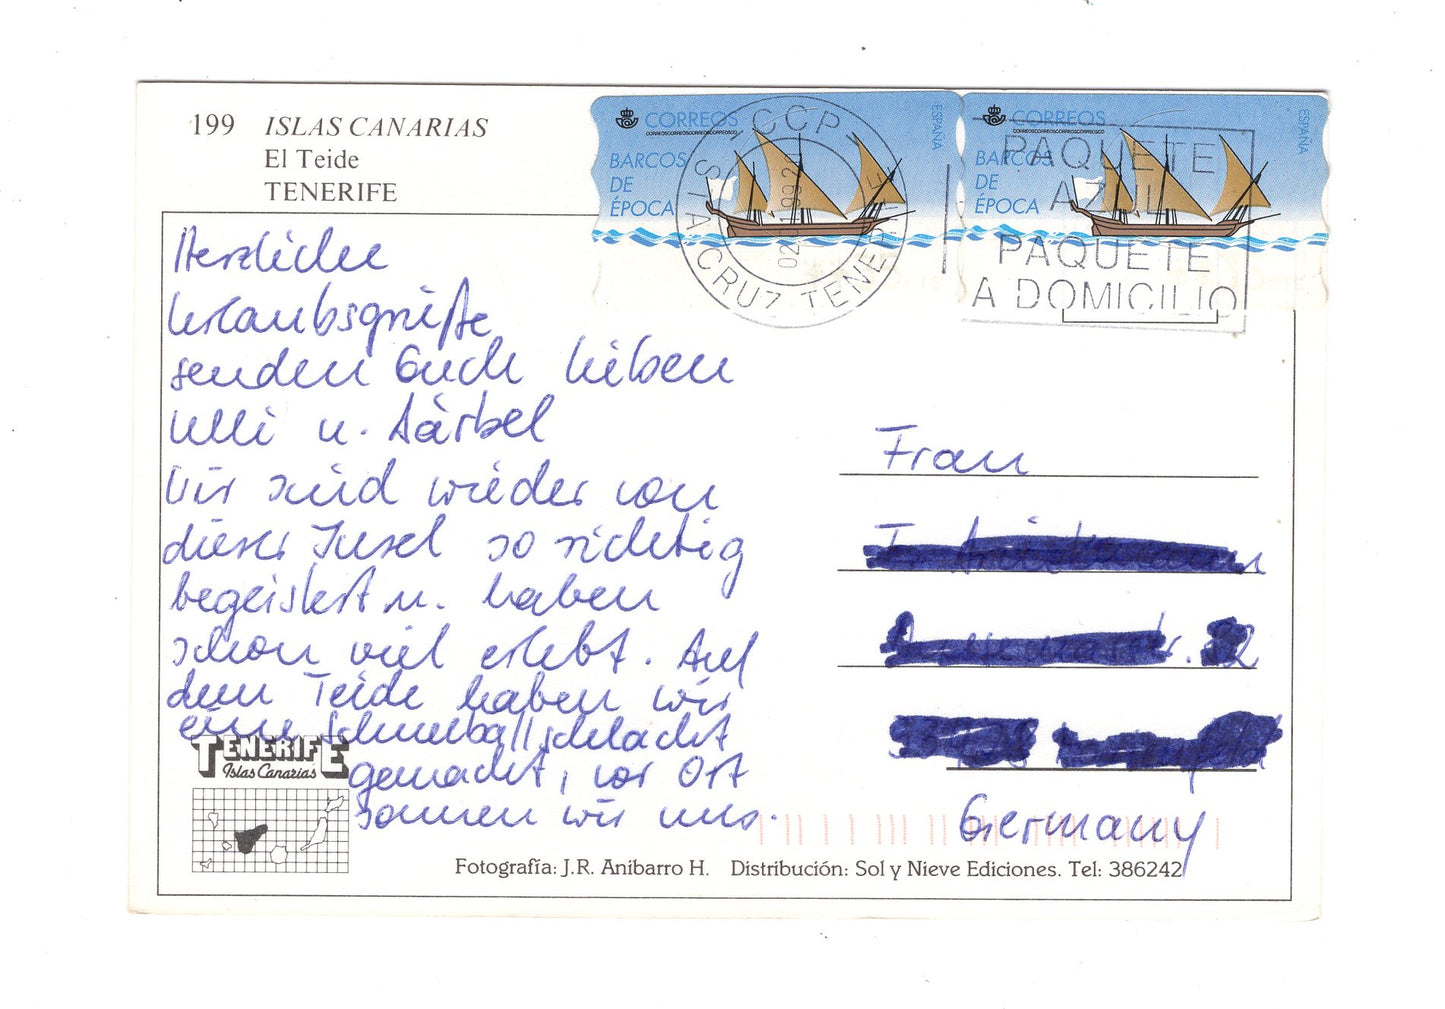 199 ISLAS CANARIAS
El Teide
TENERIFE
CORREOS
CORREOSCORREOSCORREOSCORREOS
BARCOS
DE
ÉPOCA
ESPAÑA
CORREOS
CORREOSCORREOSCORREOSCORREOS
BARCOS
DE
ÉPOCA
ESPAÑA
CCPT
STA CRUZ TENERIFE
PAQUETE
AZUL
PAQUETE
A DOMICILIO
Herzliche
Urlaubsgrüße
senden Euch lieben
Ulli u. Bärbel
Wir sind wieder von
dieser Insel so richtig
begeistert u. haben
schon viel erlebt. Auf
dem Teide haben wir
eine Schneeballschlacht
gemacht, vor Ort
sonnen wir uns.
Frau
Germany
TENERIFE
Islas Canarias
Fotografía: J.R. Anibarro H. Distribución: Sol y Nieve Ediciones. Tel: 386242